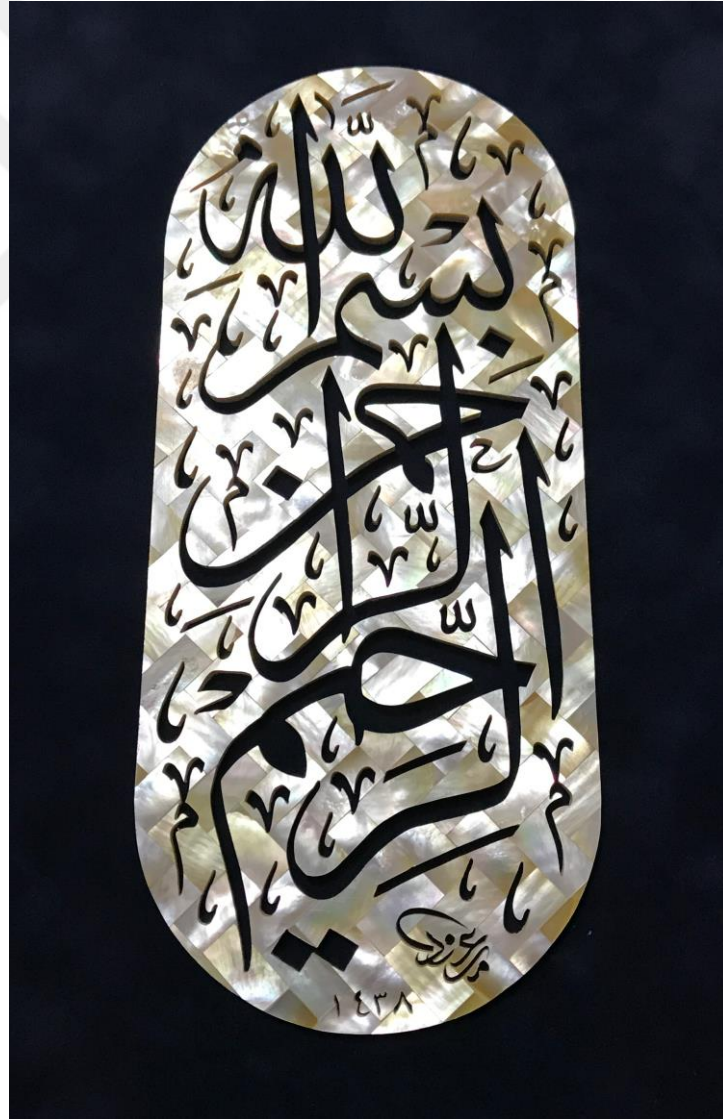 بِسْمِ اللّٰهِ
الرَّحْمٰنِ
الرَّحِيمِ
١٤٣٨